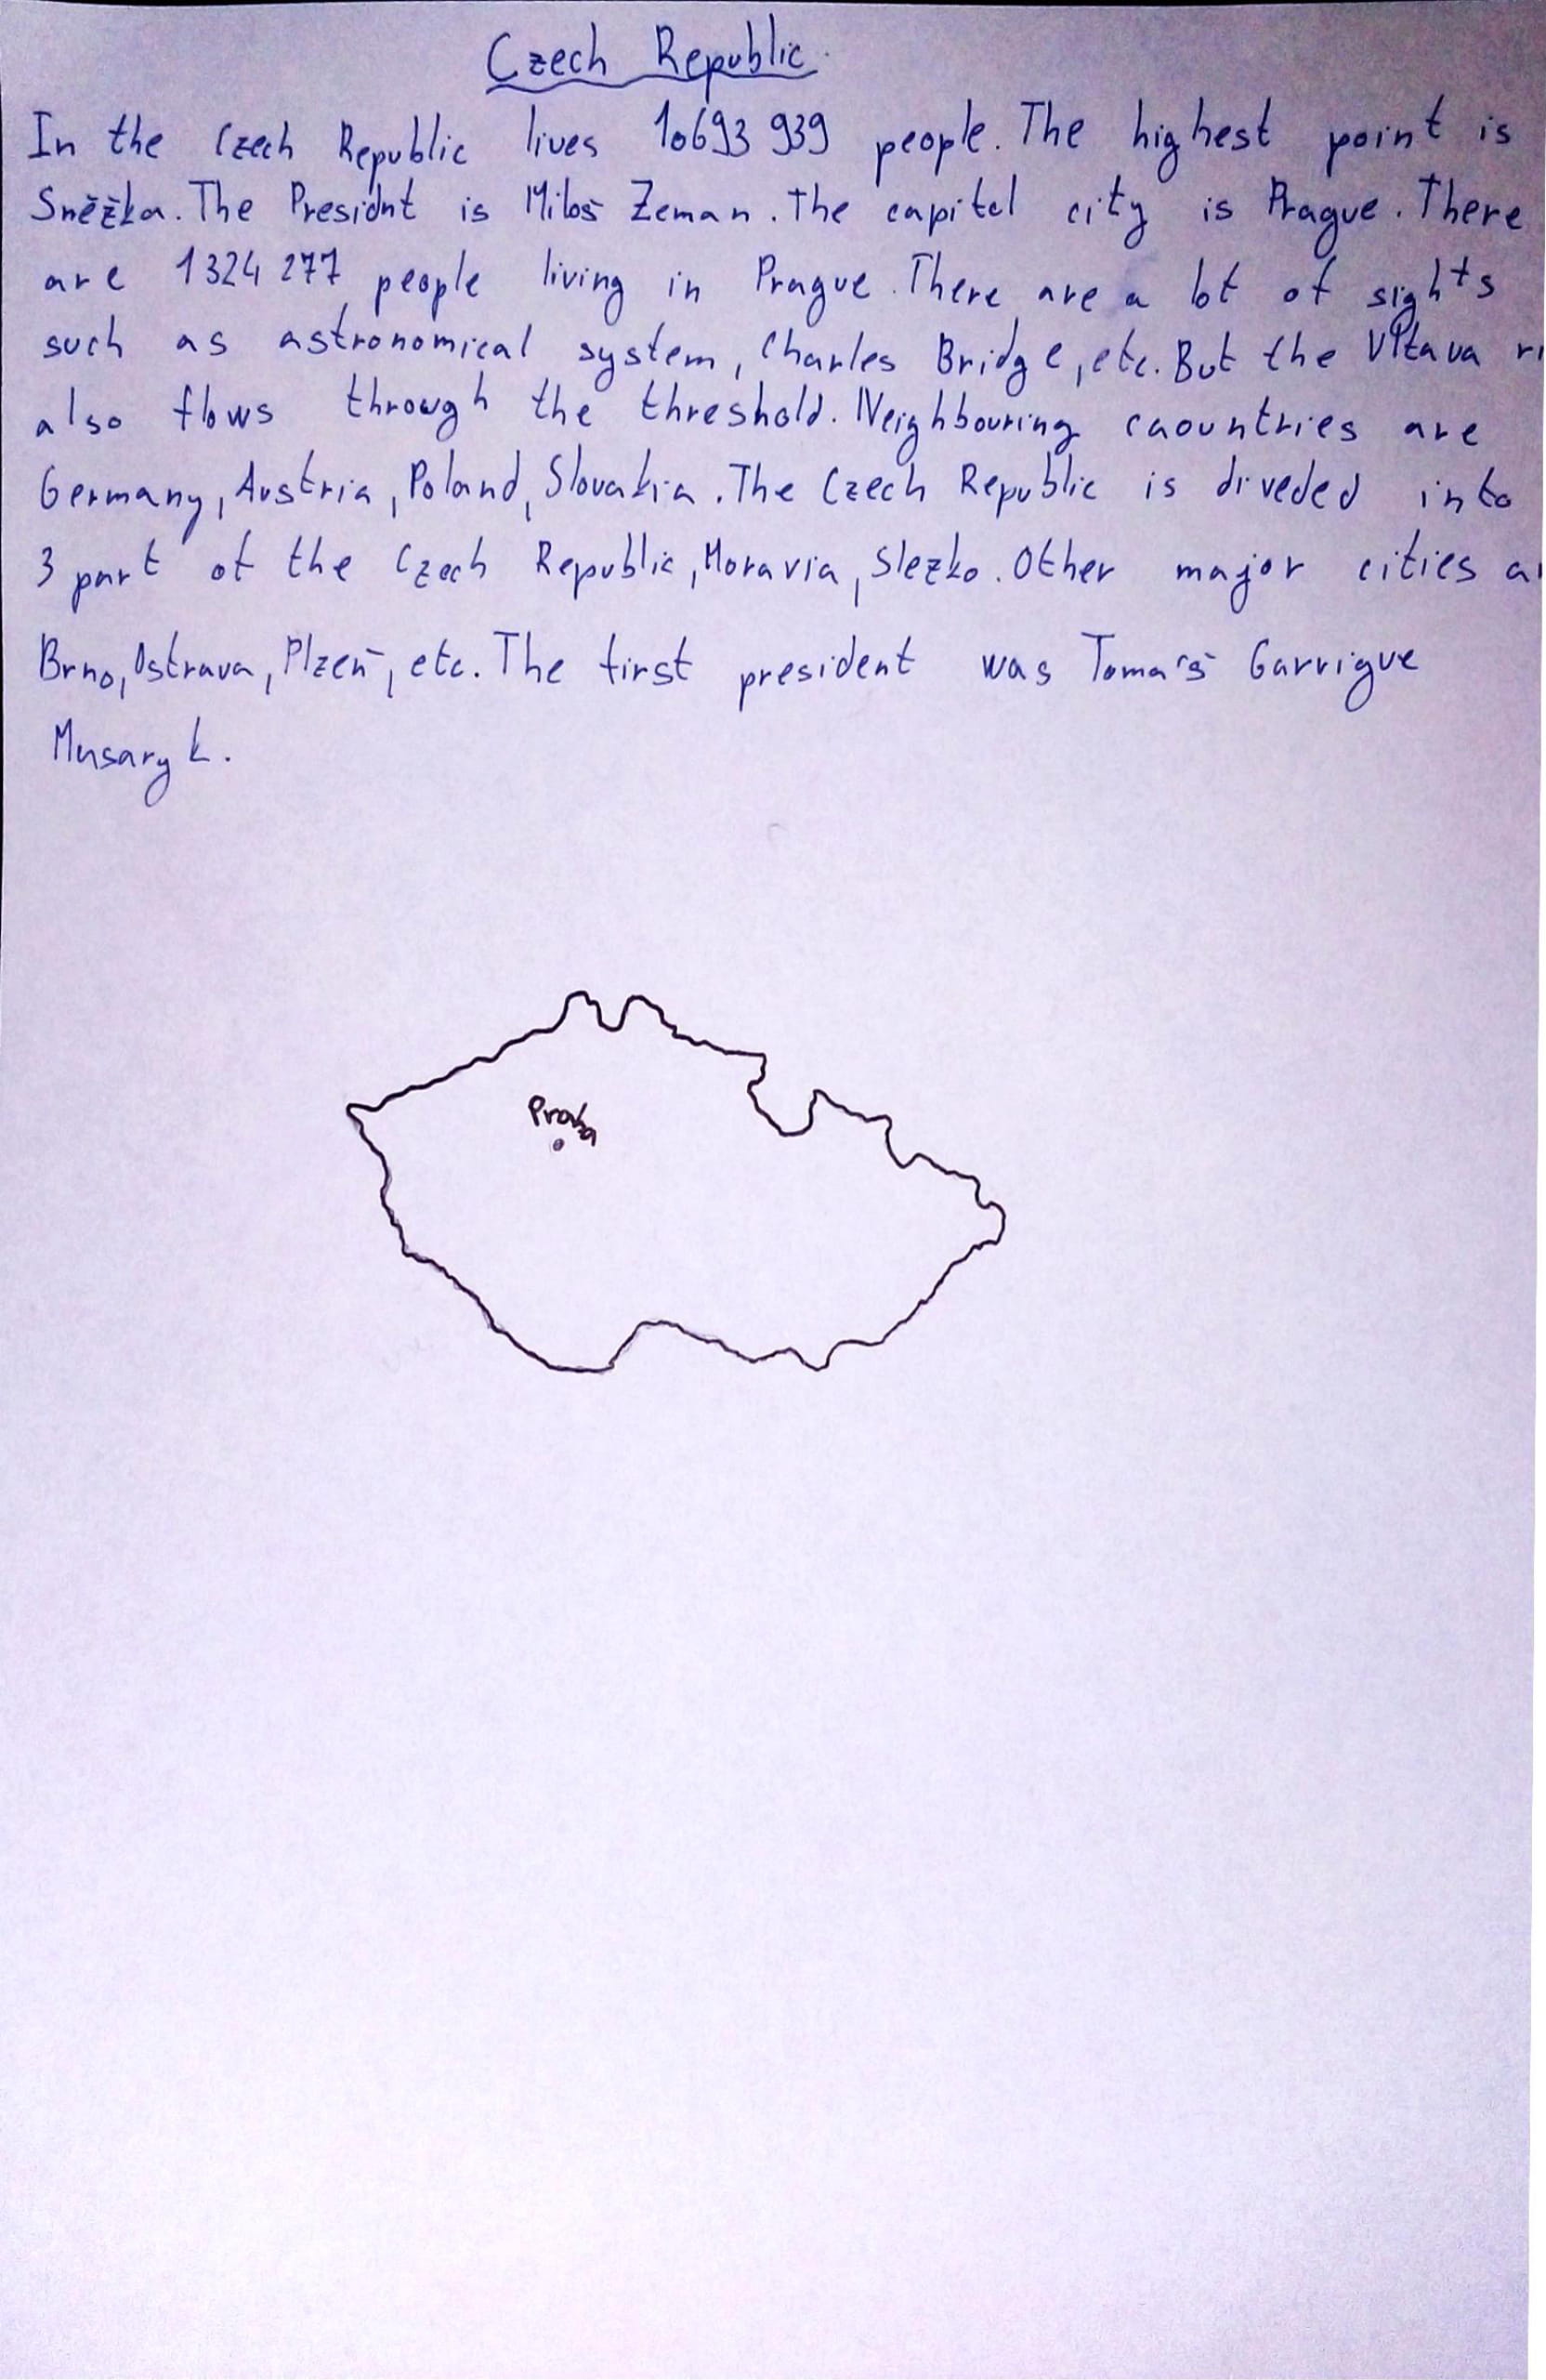 Czech Republic
In the Czech Republic lives 10693 939 people. The highest point is
Sněžka. The Presidnt is Miloš Zeman. The capital city is Prague. There
are 1324 277 people living in Prague. There are a lot of sights
such as astronomical system, Charles Bridge, etc. But the Vltava
also flows through the threshold. Neighbouring caountries are
Germany, Austria, Poland, Slovakia. The Czech Republic is diveded into
3 part of the Czech Republic, Moravia, Slezko. Other major cities
Brno, Ostrava, Plzeň, etc. The first president was Tomáš Garrigue
Masaryk.
Praha